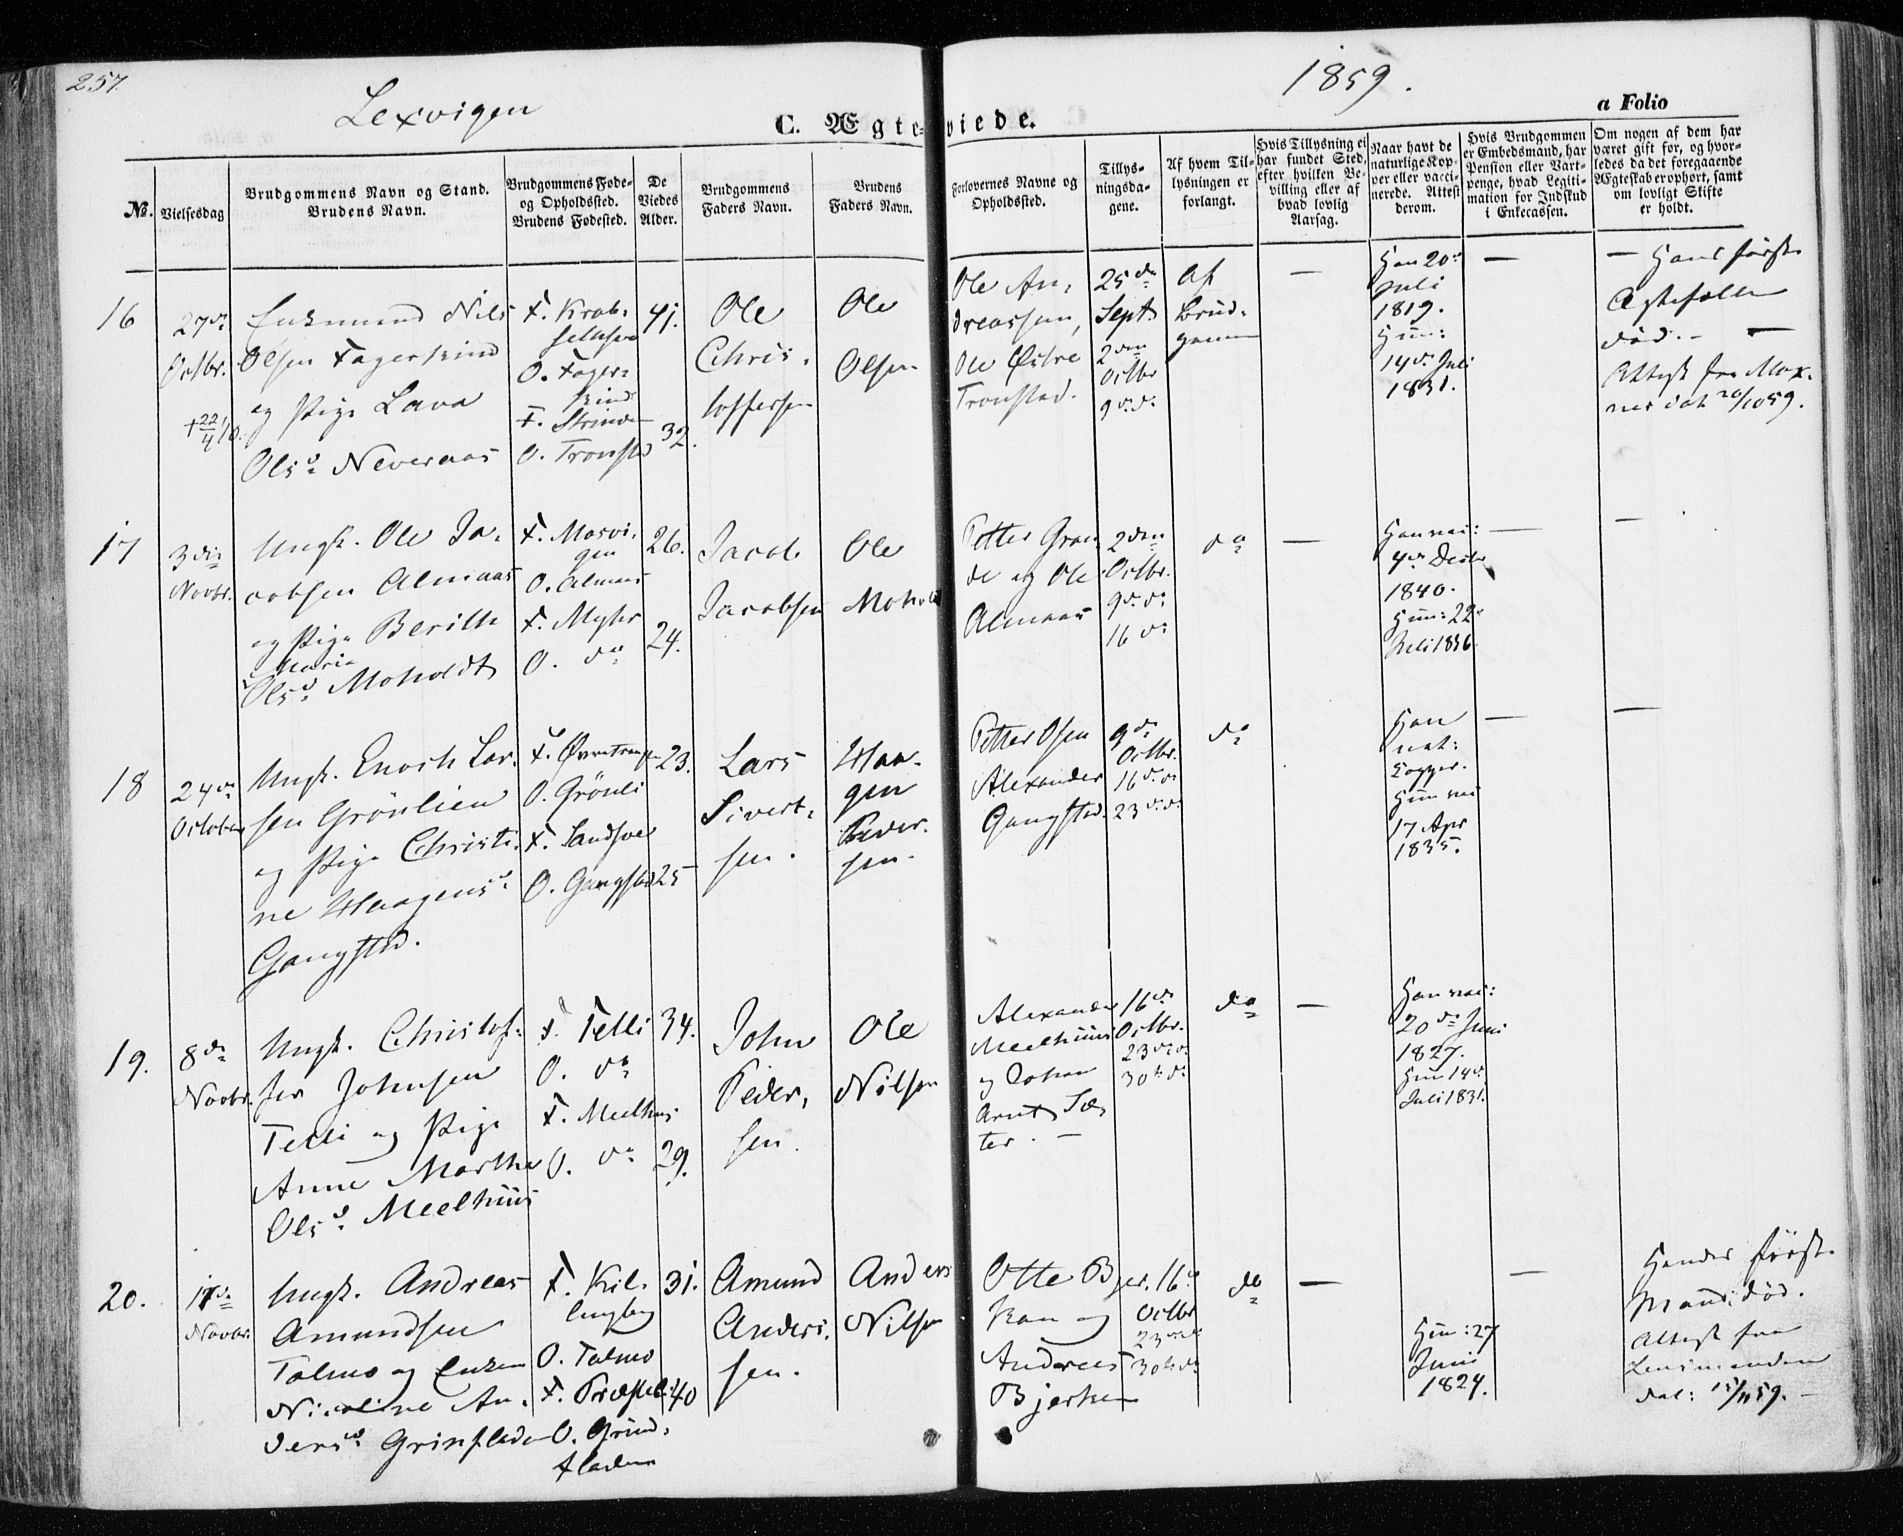 257.
Lexvigen
1859.
C. Ægteviede.
a Folio
No.
Vielsesdag
Brudgommens Navn og Stand.
Brudens Navn.
Brudgommens Føde-
og Opholdssted.
Brudens Fødested.
De
Viedes
Alder.
Brudgommens
Faders Navn.
Brudens
Faders Navn.
Forlovernes Navne og
Opholdssted.
Tillys-
ningsda-
gene.
Af hvem Til-
lysningen er
forlangt.
Hvis Tillysning ei
har fundet Sted,
efter hvilken Be-
villing eller af
hvad lovlig
Aarsag.
Naar havt de
naturlige Kop-
per eller vacci-
nerede. Attest
derom.
Hvis Brudgommen
er Embedsmand, har
Pension eller Vart-
penge, hvad Legiti-
mation for Indskud
i Enkecassen.
Om nogen af dem har
været gift før, og hvor-
ledes da det foregaaende
Ægteskab er ophørt, samt
om lovligt Skifte
er holdt.
16
27de
Octbr.
Enkemand Nils
Olsen Fagerskind
og Pige Lava
Olsd. Neveraas
F. Krob-
O. Fager-
skind
F. Strinde
O. Tronstd
41.
32.
Ole
Chris-
toffersen
Ole
Olsen
Ole An-
dreassen,
Ole Østre
Tronstad.
25de
Septr
2den
Octbr
9de do
Af
Brud-
gommen
—
Han 20de
Juli
1819.
Hun:
14de Juli
1831.
—
— Hans første
Ægtefælle
død. —
Attest fra
dat 20/10 59.
17
3die
Novbr.
Ungk. Ole Ja-
cobsen Almaas
og Pige Berith
Marie
Olsd. Moholdt
F. Mosvi-
gen
O. Almaas
F. Myhr
O. do
26.
24.
Jacob
Jacobsen
Ole
Moholdt
Petter Gran-
de og Ole
Almaas
2den
Octbr.
9de do
16 do
do
—
Han vac:
4de Decbr
1840.
Hun: 22de
Juli 1836.
—
—
18
24de
October
Ungk. Enoch Lar-
sen Grönlien
og Pige Christi-
ne Haagensd.
Gangstad.
O. Grönli
O. Gangstad
23.
25
Lars
Sivert-
sen.
Haa-
gen
Peder-
sen.
Petter Osen
Alexander
Gangstad.
9de
Octbr.
16de do
23de do
do
Han
nat:
Kopper.
Hun vac
17 Apr
1835.
—
—
19.
8de
Novbr.
Ungk. Christof-
fer Johnsen
Telli og Pige
Anne Martha
Olsd. Meelhuus
F. Telli
O. do
F. Meelhus
O. do
34.
29.
John
Peder-
sen.
Ole
Nilsen
Alexander
Meelhuus
og Johan
Arnt Sæ-
ter. —
16de
Octbr.
23de do
30te do
do
—
Han vac:
20de Juni
1827.
Hun 14de
Juli 1831.
20.
17de
Novbr.
Ungk. Andreas
Amundsen
Tolmo og Enken
Nicoline An-
dersd. Grinfladen
F. Kil-
O. Tolmo
O. Grind-
fladen
31.
40
Amund
Anders-
sen.
Anders
Nilsen
Otte Bjer-
kan og
Andreas
Bjerken
16de
Octbr
23de do
30te do
do
—
Hun: 27
Juni
1824.
—
Hendes første
Mand død.
Attest fra
Lensmanden
dat: 15/11 59. —